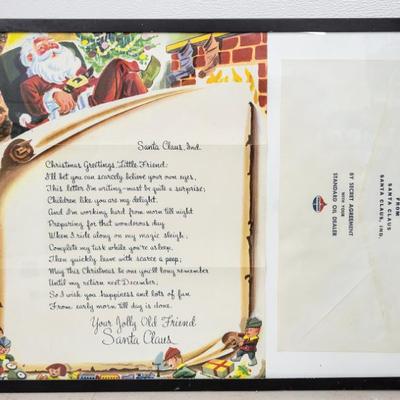 Santa Claus, Ind.
Christmas Greetings, Little Friend:
I'll bet you can scarcely believe your own eyes,
This letter I'm writing-must be quite a surprise;
Children like you are my delight,
And I'm working hard from morn till night
Preparing for that wonderous day
When I ride along on my magic sleigh;
Complete my task while you're asleep,
Then quickly leave with scarce a peep;
May this Christmas be one you'll long remember
Until my return next December;
So I wish you happiness and lots of fun
From early morn till day is done.
Your Jolly Old Friend
Santa Claus
FROM
SANTA CLAUS
SANTA CLAUS, IND.
BY SECRET AGREEMENT
WITH YOUR
STANDARD OIL DEALER